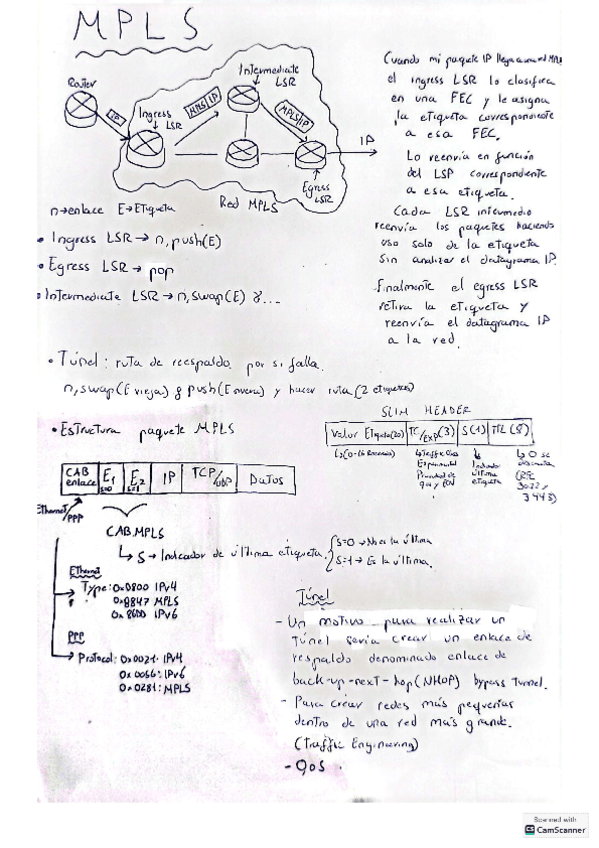 MPLS
Router
IP
Ingress
LSR
MPLS/IP
Intermediate
LSR
MPLS/IP
IP
Egress
LSR
Red MPLS
n→enlace E→Etiqueta
• Ingress LSR → n, push(E)
• Egress LSR → pop
• Intermediate LSR → n, swap(E) y...
Cuando mi paquete IP llega a una red MPLS
el ingress LSR lo clasifica
en una FEC y le asigna
la etiqueta correspondiente
a esa FEC.
Lo reenvía en función
del LSP correspondiente
a esa etiqueta.
Cada LSR intermedio
reenvía los paquetes haciendo
uso solo de la etiqueta
sin analizar el datagrama IP.
Finalmente el egress LSR
retira la etiqueta y
reenvía el datagrama IP
a la red.
• Túnel: ruta de respaldo por si falla.
n, swap(E vieja) y push(E nueva) y hacer ruta (2 etiquetas)
• Estructura paquete MPLS
SLIM HEADER
Valor Etiqueta(20) TC/EXP(3) S(1) TTL(8)
Experimental
Indicador
última
etiqueta
3443)
CAB enlace E1 S=0 E2 S=1 IP TCP/UDP Datos
Ethernet/PPP
CAB.MPLS
S → Indicador de última etiqueta.
S=0 → No es la última
S=1 → Es la última.
Ethernet
Type: 0x0800 IPv4
0x8847 MPLS
IPv6
PPP
Protocol: 0x0021: IPv4
IPv6
0x0281: MPLS
Túnel
- Un motivo para realizar un
túnel sería crear un enlace de
respaldo denominado enlace de
back-up-next-hop (NHOP) bypass tunnel.
- Para crear redes más pequeñas
dentro de una red más grande.
(Traffic Engineering)
- QoS
Scanned with
CS CamScanner